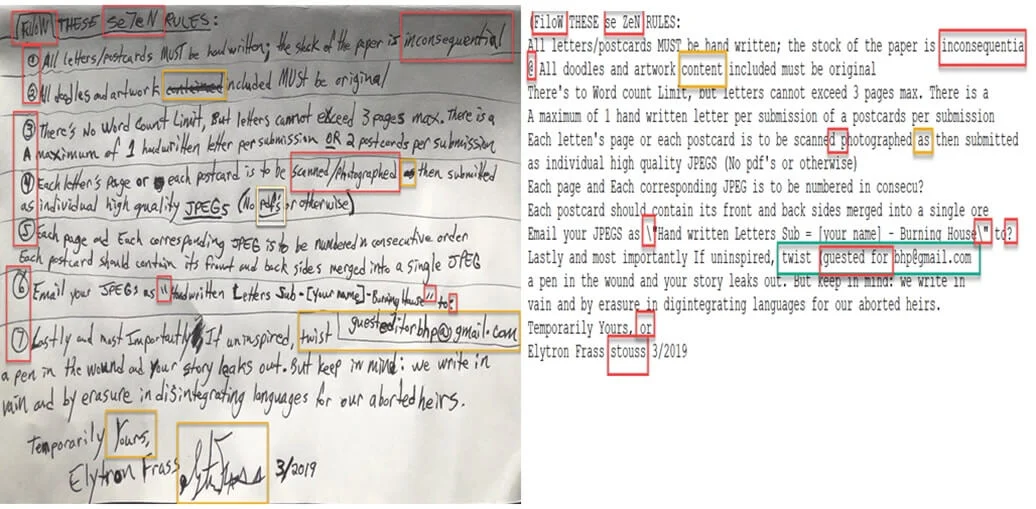 (FlloW THESE seVeN RULES:
① All letters/postcards MUST be handwritten; the stock of the paper is inconsequential
② All doodles and artwork included MUST be original
③ There's No Word Count Limit, But letters cannot exceed 3 pages max. There is a
A maximum of 1 handwritten letter per submission OR 2 postcards per submission
④ Each letter's page or each postcard is to be scanned/photographed then submitted
as individual high quality JPEGs (No pdf's or otherwise)
⑤ Each page and Each corresponding JPEG is to be numbered in consecutive order
Each postcard should contain its front and back sides merged into a single JPEG
⑥ Email your JPEGs as "Handwritten Letters Sub - [your name] - Burning House" to:
guesteditorbhp@gmail.com
⑦ Lastly and most Importantly, If uninspired, twist
a pen in the wound and your story leaks out. But keep in mind: we write in
vain and by erasure in disintegrating languages for our aborted heirs.
Temporarily Yours,
Elytron Frass 3/2019
(FiloW THESE se ZeN RULES:
All letters/postcards MUST be hand written; the stock of the paper is inconsequentia
@ All doodles and artwork content included must be original
There's to Word count Limit, but letters cannot exceed 3 pages max. There is a
A maximum of 1 hand written letter per submission of a postcards per submission
Each letten's page or each postcard is to be scanned photographed as then submitted
as individual high quality JPEGS (No pdf's or otherwise)
Each page and Each corresponding JPEG is to be numbered in consecu?
Each postcard should contain its front and back sides merged into a single ore
Email your JPEGS as \"Hand written Letters Sub = [your name] - Burning House\" to?
Lastly and most importantly If uninspired, twist (guested for bhp@gmail.com
a pen in the wound and your story leaks out. But keep in mind: we write in
vain and by erasure in digintegrating languages for our aborted heirs.
Temporarily Yours, or
Elytron Frass stouss 3/2019